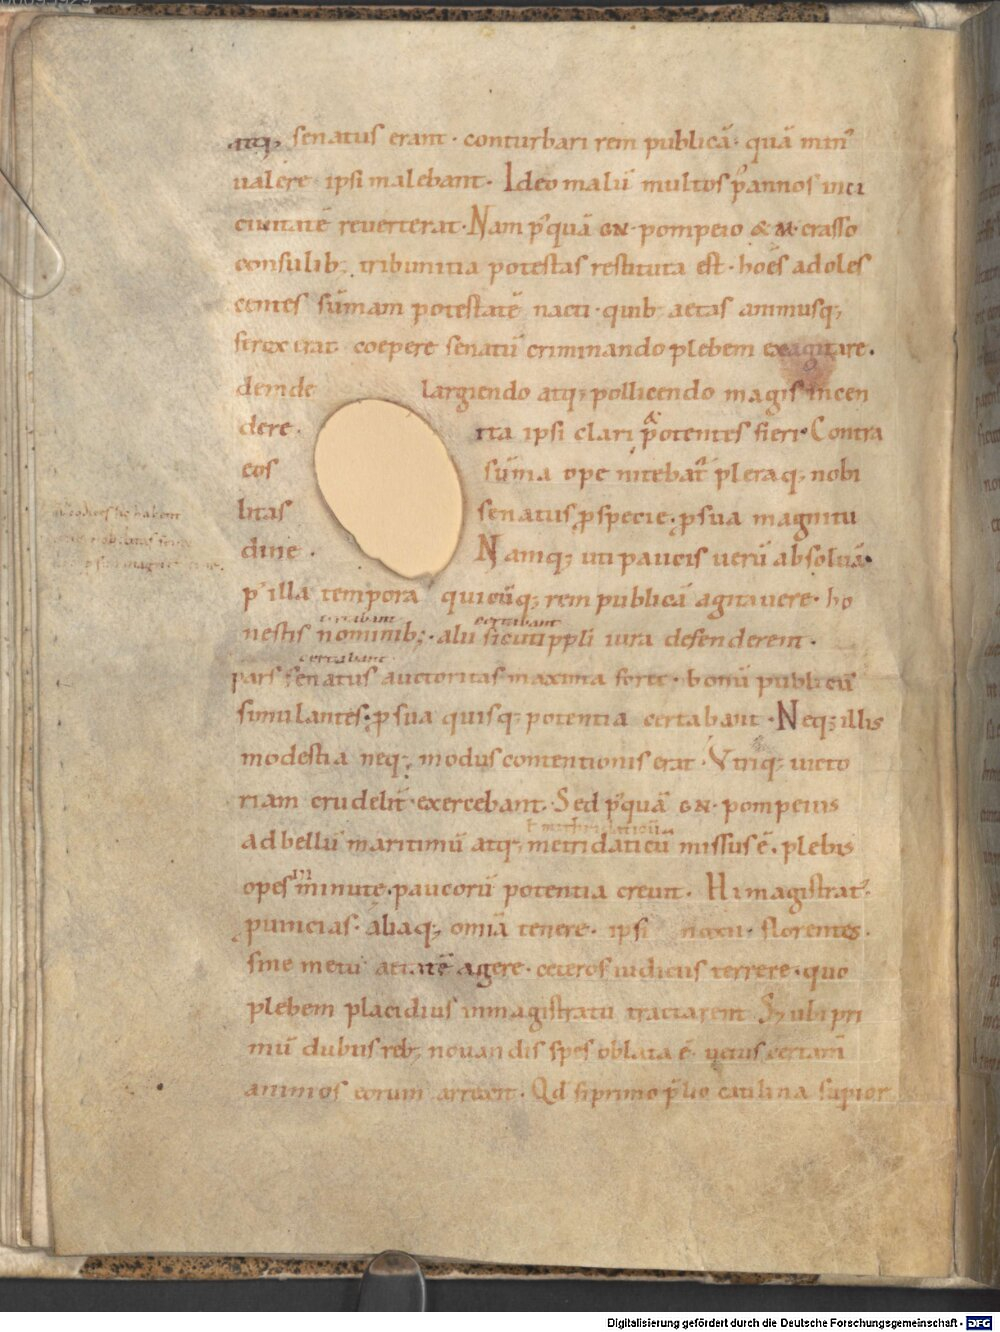 atq; senatus erant · conturbari rem publicā · quā min᾽
ualere ipsi malebant · Ideo malū multos p᾽ annos inci
ciuitatē reuerterat · Nam p᾽quā GN · pompeio & M · crasso
consulib; tribunitia potestas restituta est · hoēs adoles
centes sūmam potestatē nacti · quib aetas animusq;
coepere senatū criminando plebem exagitare ·
deinde largiendo atq; pollicendo magis incen
dere · ita ipsi clari & potentes fieri · Contra
eos sūma ope nitebat᾽ pleraq; nobi
litas senatus p specie · p sua magnitu
dine · Namq; uti paucis uerū absoluā ·
p᾽ illa tempora quicūq; rem publicā agitauere · ho
certabant certabant
nestis nominib; · alii sicuti ppli iura defenderent ·
certabant
pars senatus auctoritas maxima foret · bonū publicū
simulantes · p sua quisq; potentia certabant · Neq; illis
modestia neq; modus contentionis erat · Vtriq; uicto
riam crudelit᾽ exercebant · Sed p᾽quā GN · pompeius
ł mithridaticū
ad bellū maritimū atq; metridaticū missus ē · plebis
opes inminute · paucorū potentia creuit · Hi magistrat᾽
puincias · aliaq; omīa tenere · ipsi noxii · florentes ·
sine metu aetatē agere · ceteros iudiciis terrere · quo
plebem placidius inmagistratu tractarent S; ubi pri
mū dubiis reb; nouandis spes oblata ē · uetus certam̄
animos eorum arrexit · Qd si primo p̄lio catilina supior